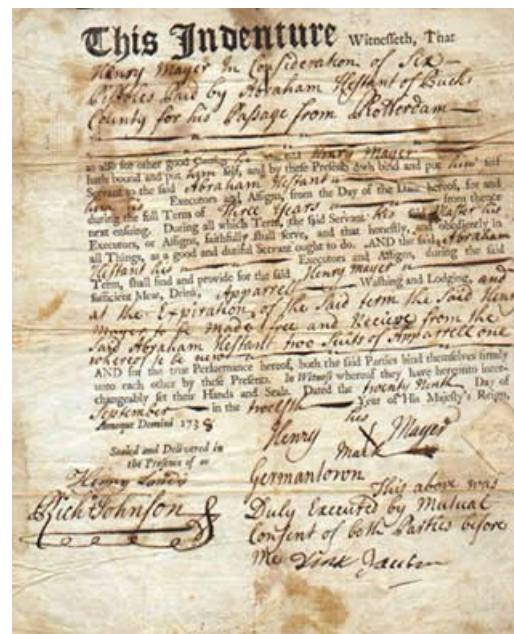 This Indenture Witnesseth, That
Henry Mayer In Consideration of Six
Pistoles Paid by Abraham Hestant of Bucks
County for his Passage from Rotterdam
as also for other good Causes, he the said Henry Mayer
hath bound and put himself, and by these Presents doth bind and put him self
Servant to the said Abraham Hestant
him his Executors and Assigns, from the Day of the Date hereof, for and
during the full Term of Three Years from thence
next ensuing. During all which Term, the said Servant his said Master his
Executors, or Assigns, faithfully shall serve, and that honestly, and obediently in
all Things, as a good and dutiful Servant ought to do. AND the said Abraham
Hestant his Executors and Assigns, during the said
Term, shall find and provide for the said Henry Mayer
sufficient Meat, Drink, Apparrell Washing and Lodging, and
at the Expiration of the Said term the Said Henry
Mayer to be made free and Recieve from the
Said Abraham Hestant two Suits of Apparrell one
whereof to be new
AND for the true Performance hereof, both the said Parties bind themselves firmly
unto each other by these Presents. In Witness whereof they have hereunto inter-
changeably set their Hands and Seals. Dated the twenty Ninth Day of
September in the twelfth Year of His Majesty's Reign,
Annoque Domini 1738
his
Henry X Mayer
mark
Sealed and Delivered in
the Presence of us
Rich Johnson
Germantown
This above was
Duly Executed by Mutual
Consent of both Parties before
me